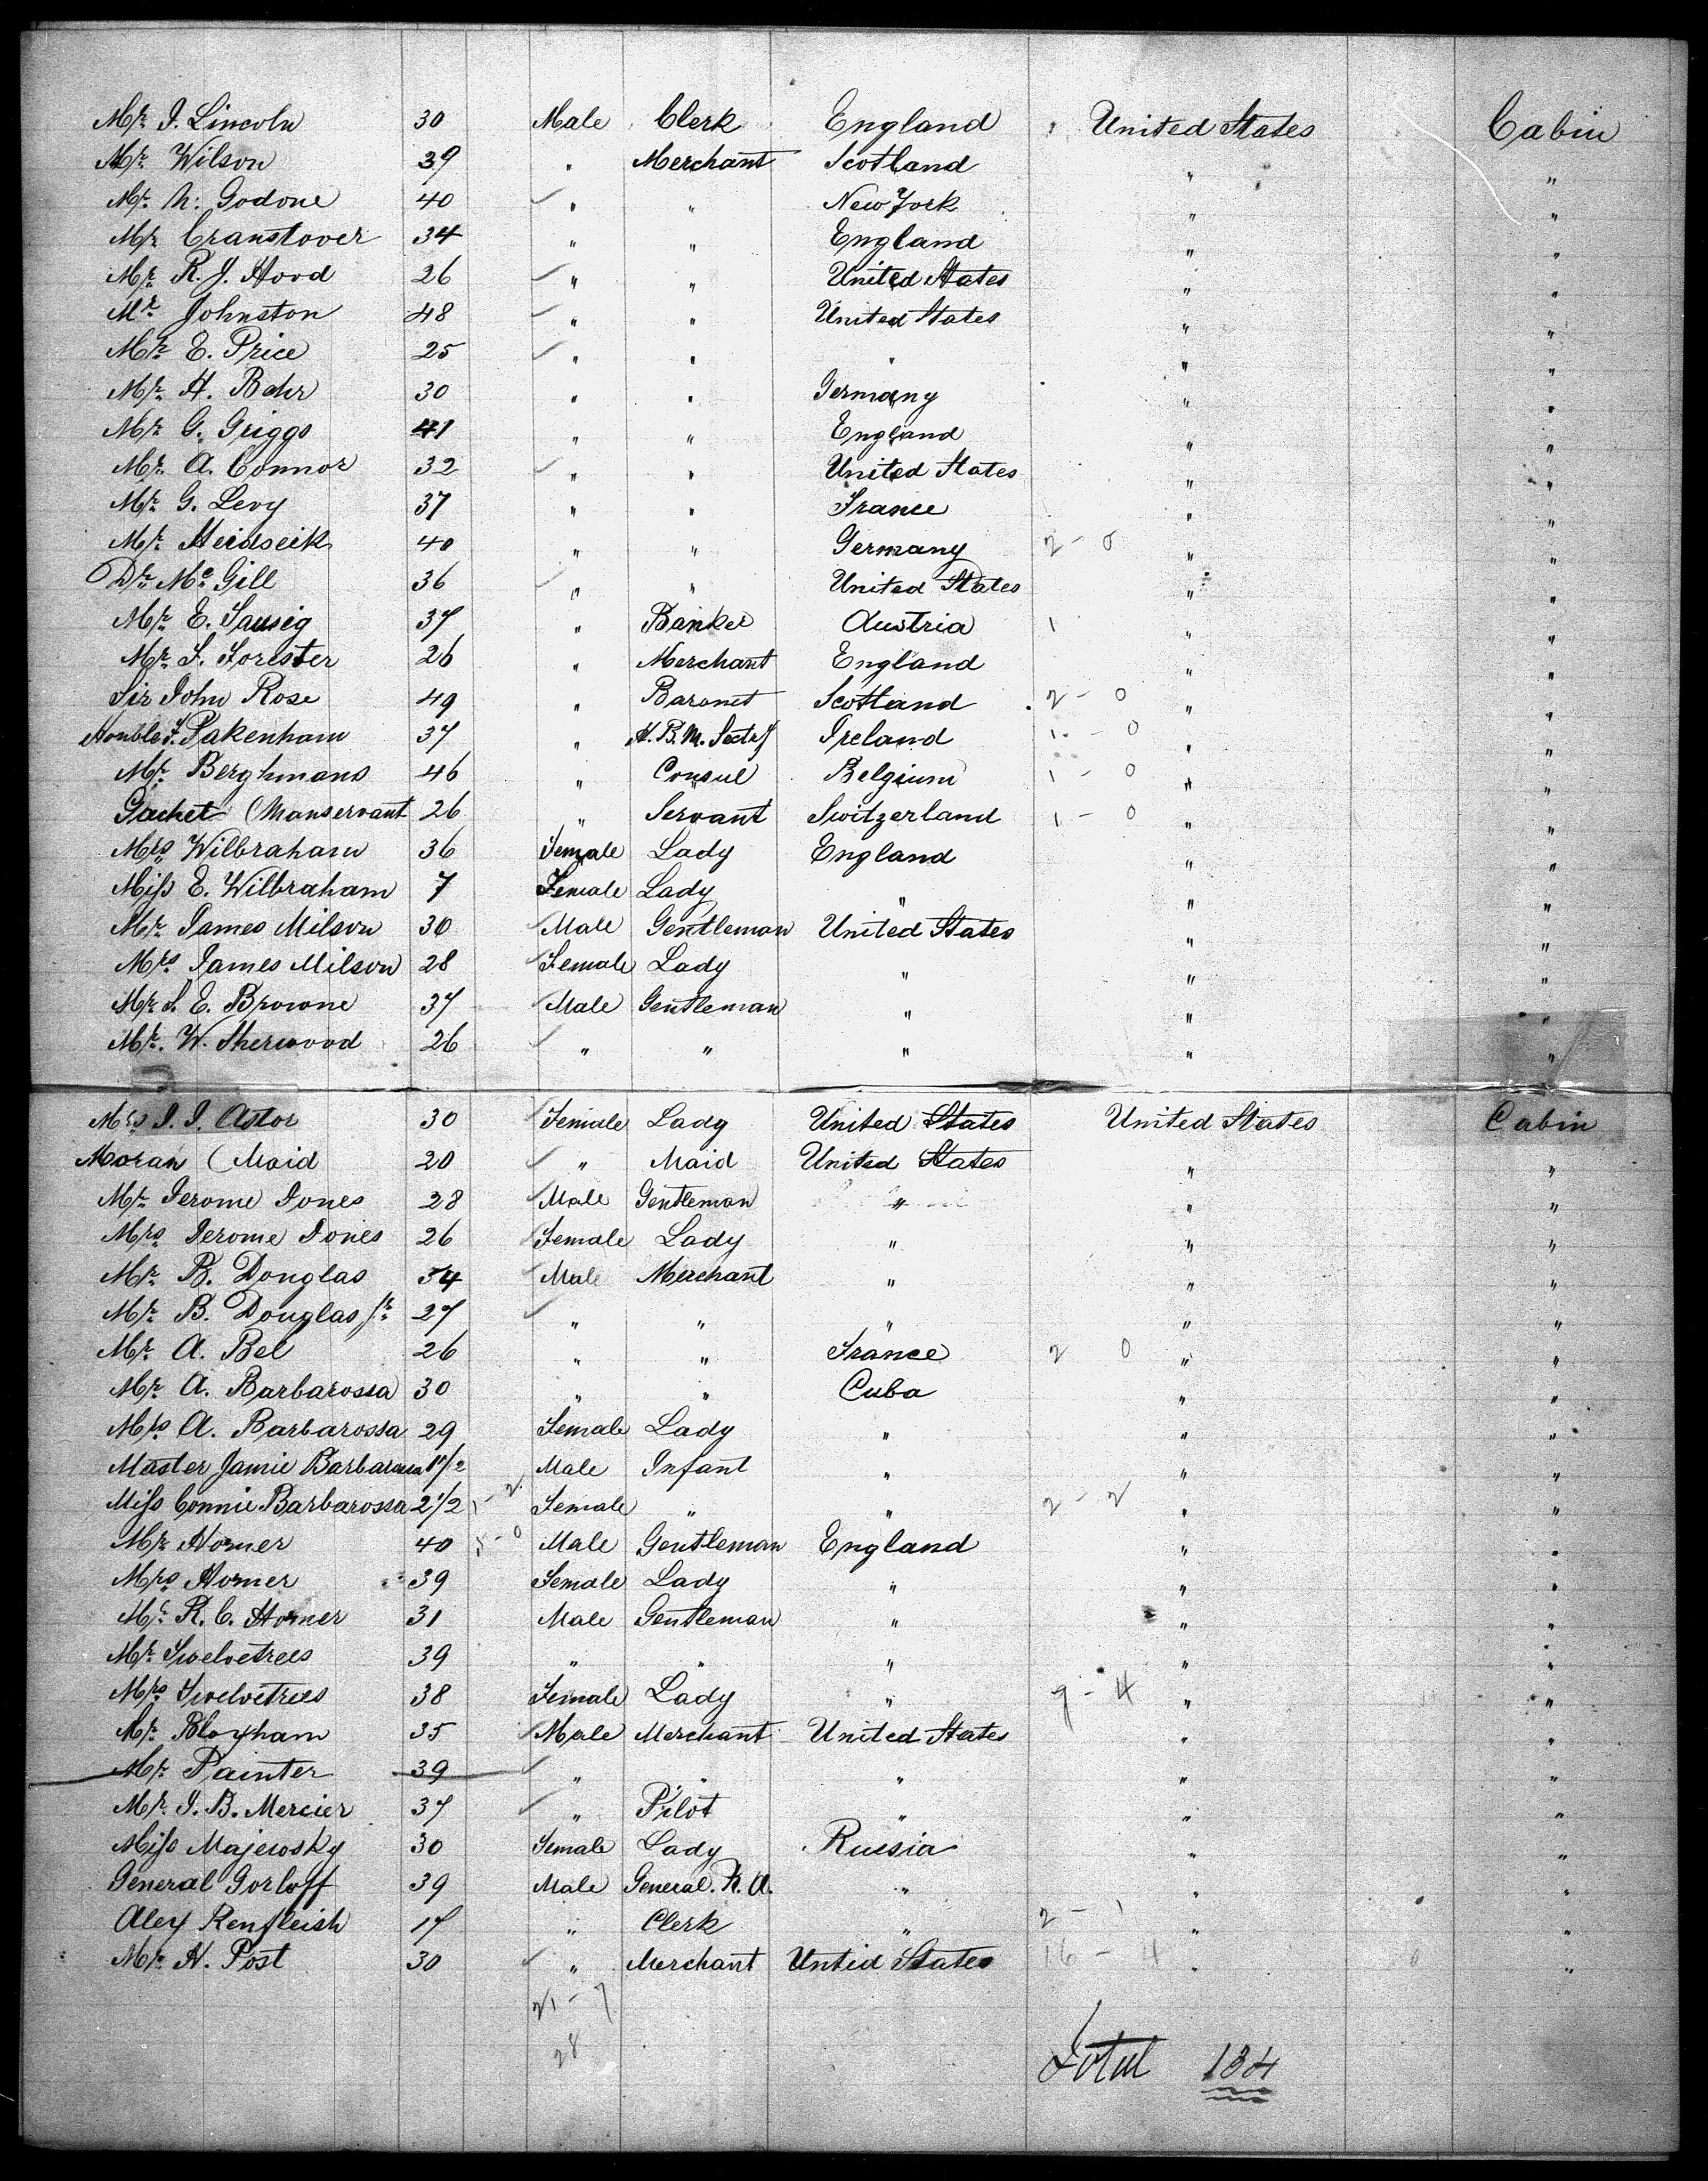 Mr. J. Lincoln 30 Male Clerk England United States Cabin
Mr. Wilson 39 " Merchant Scotland " "
Mr. N. Godone 40 " " New York " "
Mr. Cranstover 34 " " England " "
Mr. R. J. Hood 26 " " United States " "
Mr. Johnston 48 " " United States " "
Mr. E. Price 25 " " " " "
Mr. H. Behr 30 " " Germany " "
Mr. G. Griggs 41 " " England " "
Mr. A. Connor 32 " " United States " "
Mr. G. Levy 37 " " France " "
Mr. Heidseik 40 " " Germany 2 - 0 " "
Dr. Mc. Gill 36 " " United States " "
Mr. E. Sausig 37 " Banker Austria 1 " "
Mr. F. Forester 26 " Merchant England " "
Sir John Rose 49 " Baronet Scotland 2 - 0 " "
Honble F. Pakenham 37 " H. B. M. Secty Ireland 1 - 0 " "
Mr. Berghmans 46 " Consul Belgium 1 - 0 " "
Gachet (Manservant 26 " Servant Switzerland 1 - 0 " "
Mrs Wilbraham 36 Female Lady England " "
Miss E. Wilbraham 7 Female Lady " " "
Mr. James Milson 30 Male Gentleman United States " "
Mrs James Milson 28 Female Lady " " "
Mr. S. E. Browne 37 Male Gentleman " " "
Mr. W. Sherwood 26 " " " " "
Mrs J. J. Astor 30 Female Lady United States United States Cabin
Moran (Maid 20 " Maid United States " "
Mr. Jerome Jones 28 Male Gentleman " " "
Mrs Jerome Jones 26 Female Lady " " "
Mr. B. Douglas 54 Male Merchant " " "
Mr. B. Douglas Jr. 27 " " " " "
Mr. A. Bel 26 " " France 2 0 " "
Mr. A. Barbarossa 30 " " Cuba " "
Mrs A. Barbarossa 29 Female Lady " " "
Master Jamie Barbarossa 1 1/2 Male Infant " " "
Miss Connie Barbarossa 2 1/2 Female " " 2 - 2 " "
Mr. Horner 40 5 - 0 Male Gentleman England " "
Mrs Horner 39 Female Lady " " "
Mr. R. C. Horner 31 Male Gentleman " " "
Mr. Twelvetrees 39 " " " " "
Mrs Twelvetrees 38 Female Lady " 9 - 4 " "
Mr. Bloxham 35 Male Merchant United States " "
Mr. Painter 39 " " " " "
Mr. J. B. Mercier 37 " Pilot " " "
Miss Majewsky 30 Female Lady Russia " "
General Gorloff 39 Male General. R. A. " " "
Alex Renfleish 17 " Clerk " 2 - 1 " "
Mr. H. Post 30 " Merchant Untied States 16 - 4 " "
21 - 7
28
Total 134